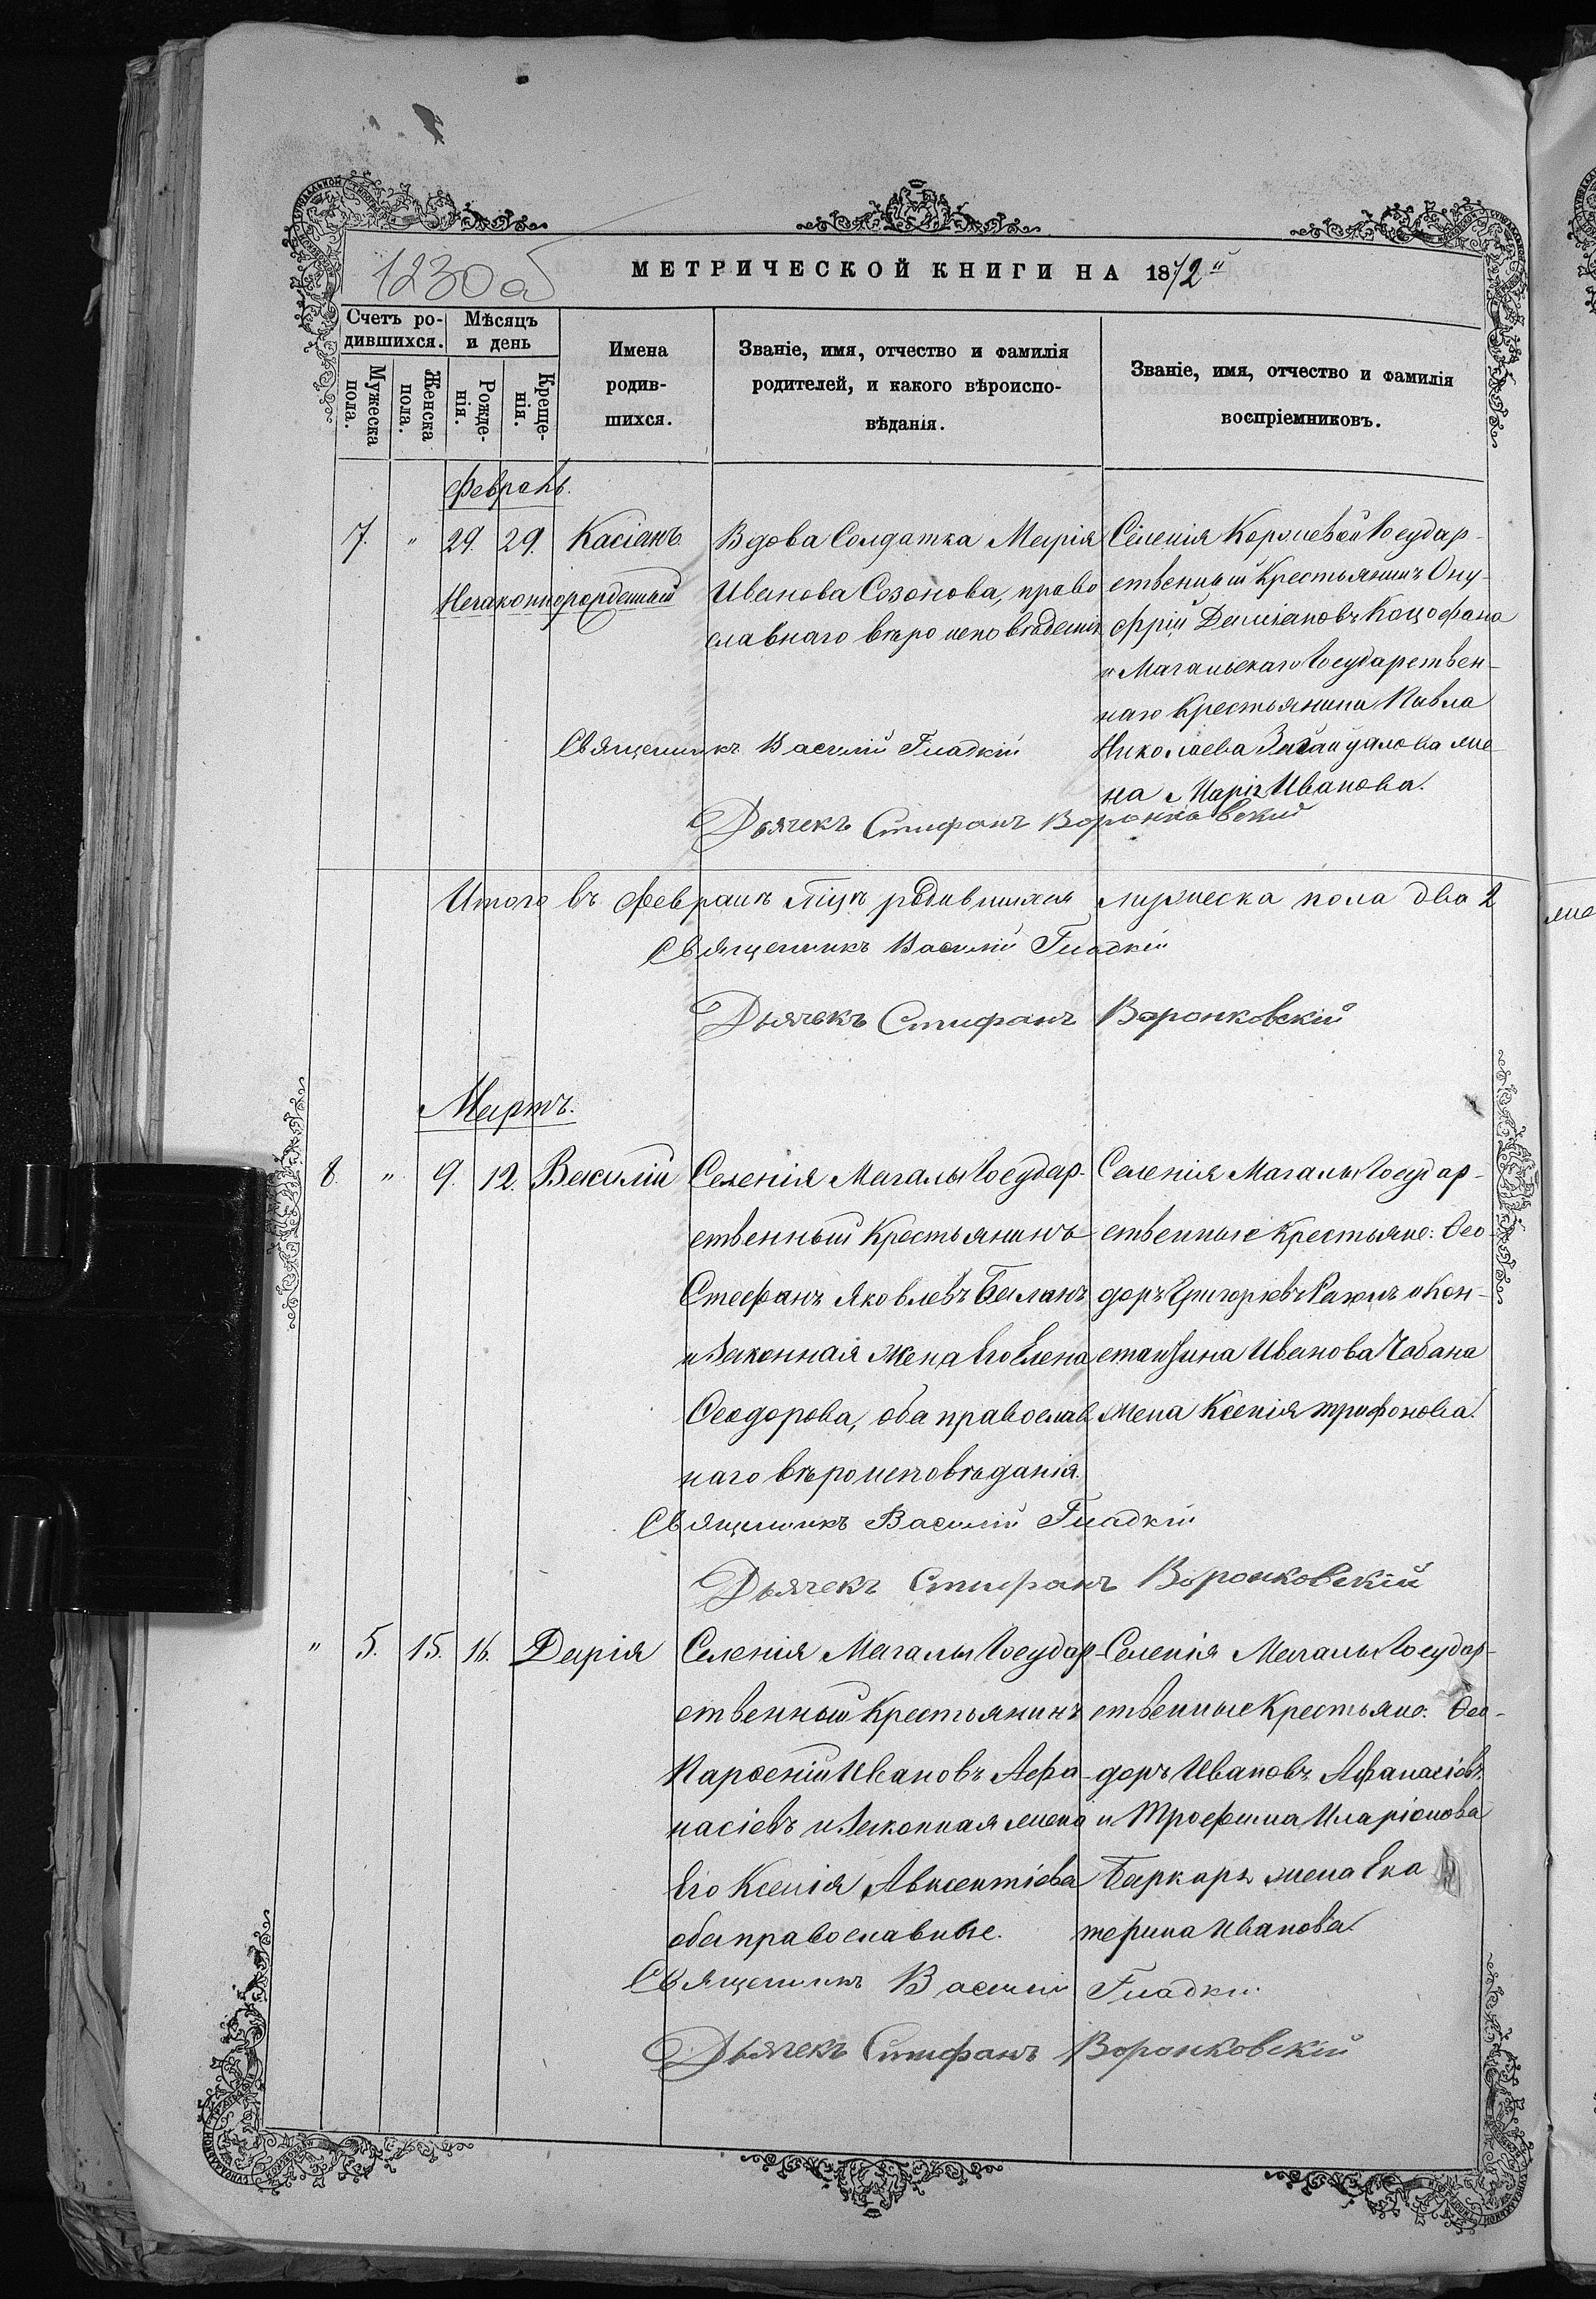 1230 об
МЕТРИЧЕСКОЙ КНИГИ НА 1872й
Счетъ ро-
дившихся.
Мѣсяцъ
и день
Мужеска
пола.
Женска
пола.
Рожде-
нія.
Креще-
нія.
Имена
родив-
шихся.
Званіе, имя, отчество и фамилія
родителей, и какого вѣроиспо-
вѣданія.
Званіе, имя, отчество и фамилія
воспріемниковъ.
Февраль.
7. " 29. 29. Касіанъ
Незаконнорожденный
Вдова Солдатка Марія
Иванова Созонова, право
славнаго вѣроисповѣданія
Селенія Коржевой Государ-
ственный Крестьянинъ Ону-
фрій Даміановъ Коцофана
и Магальскаго Государствен-
наго Крестьянина Павла
Николаева жена
Марія Иванова.
Священникъ Василій Гладкій
Дьячекъ Стефанъ Воронковскій
Итого въ Февралѣ м-цѣ родившихся мужеска пола два 2
Священникъ Василій Гладкій
Дьячекъ Стефанъ Воронковскій
Мартъ.
8. " 9. 12. Василій
Селенія Магалы Государ-
ственный Крестьянинъ
Стефанъ Яковлевъ Баланъ
и законная жена его Елена
Феодорова, оба православ
наго вѣроисповѣданія.
Селенія Магалы Государ-
ственные крестьяне: Ѳео-
доръ Григорьевъ и Кон-
стантина Иванова Чабана
жена Ксенія Трифонова.
Священникъ Василій Гладкій
Дьячекъ Стефанъ Воронковскій
" 5. 15. 16. Дарія
Селенія Магалы Государ-
ственный Крестьянинъ
Парѳеній Ивановъ Афа-
насіевъ и законная жена
его Ксенія Авксентіева
оба православные.
Селенія Магалы Государ-
ственные Крестьяне: Ѳео-
доръ Ивановъ Афанасіевъ
и Трофима Иларіонова
Баркаръ жена Ека
терина Иванова.
Священникъ Василій Гладкій
Дьячекъ Стефанъ Воронковскій